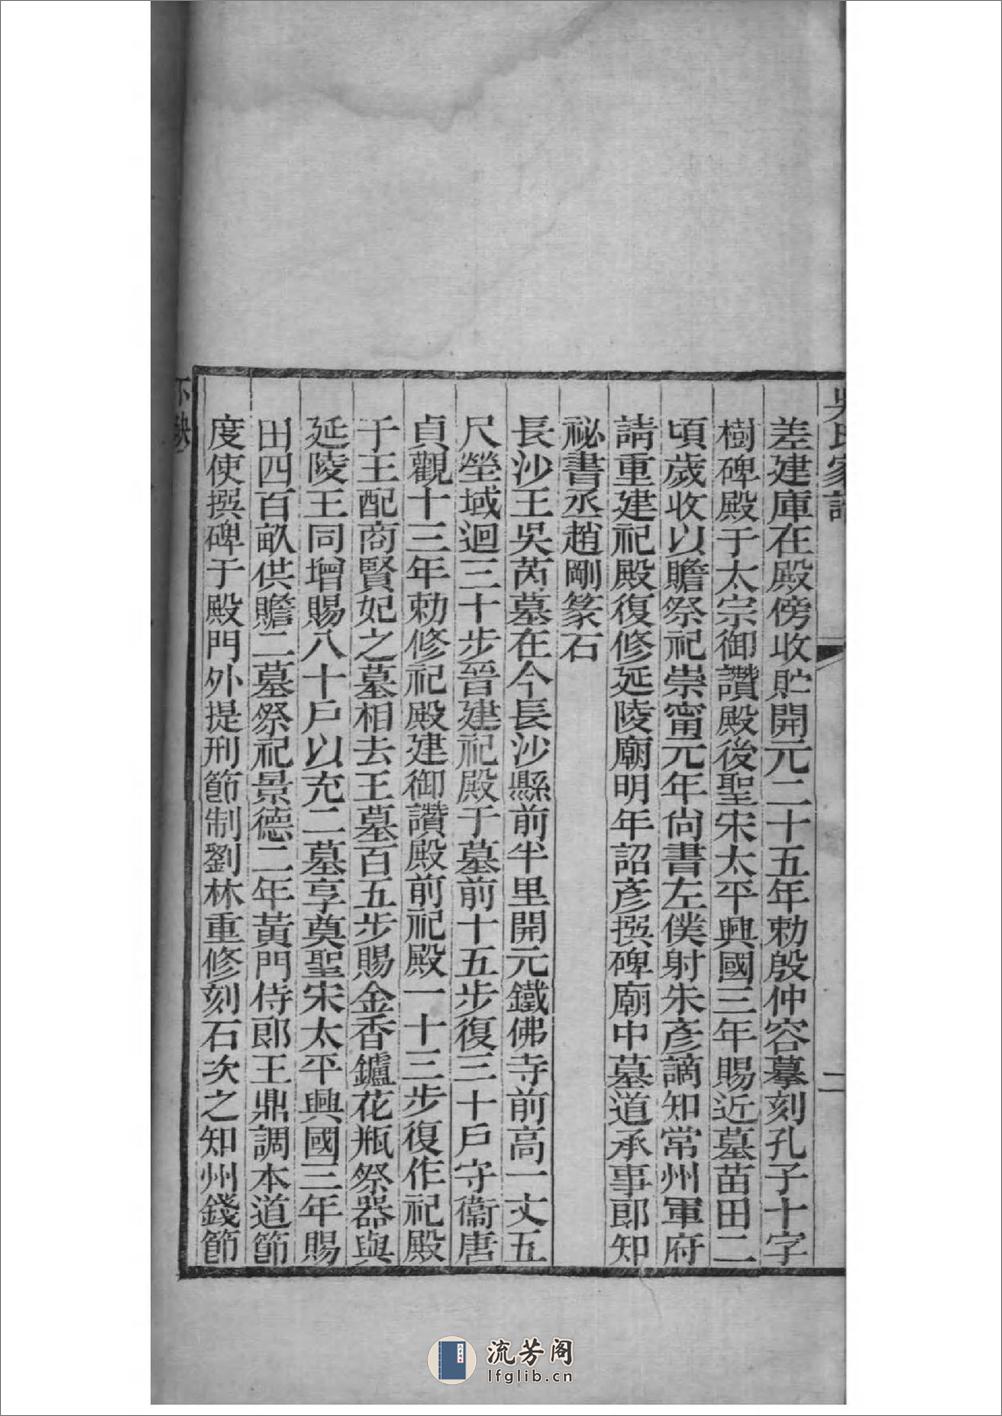 吳氏家譜
二
差建庫在殿傍收貯開元二十五年勅殷仲容摹刻孔子十字
樹碑殿于太宗御讚殿後聖宋太平興國三年賜近墓苗田二
頃歲收以贍祭祀崇甯元年尙書左僕射朱彥謫知常州軍府
請重建祀殿復修延陵廟明年詔彥撰碑廟中墓道承事郞知
祕書丞趙剛篆石
長沙王吳芮墓在今長沙縣前半里開元鐵佛寺前高一丈五
尺塋域迴三十步晉建祀殿于墓前十五步復三十戶守衞唐
貞觀十三年勅修祀殿建御讚殿前祀殿一十三步復作祀殿
于王配商賢妃之墓相去王墓百五步賜金香鑪花瓶祭器與
延陵王同增賜八十戶以充二墓享奠聖宋太平興國三年賜
田四百畝供贍二墓祭祀景德二年黃門侍郞王鼎調本道節
度使撰碑于殿門外提刑節制劉林重修刻石次之知州錢節
不缺
流芳阁
lfglib.cn